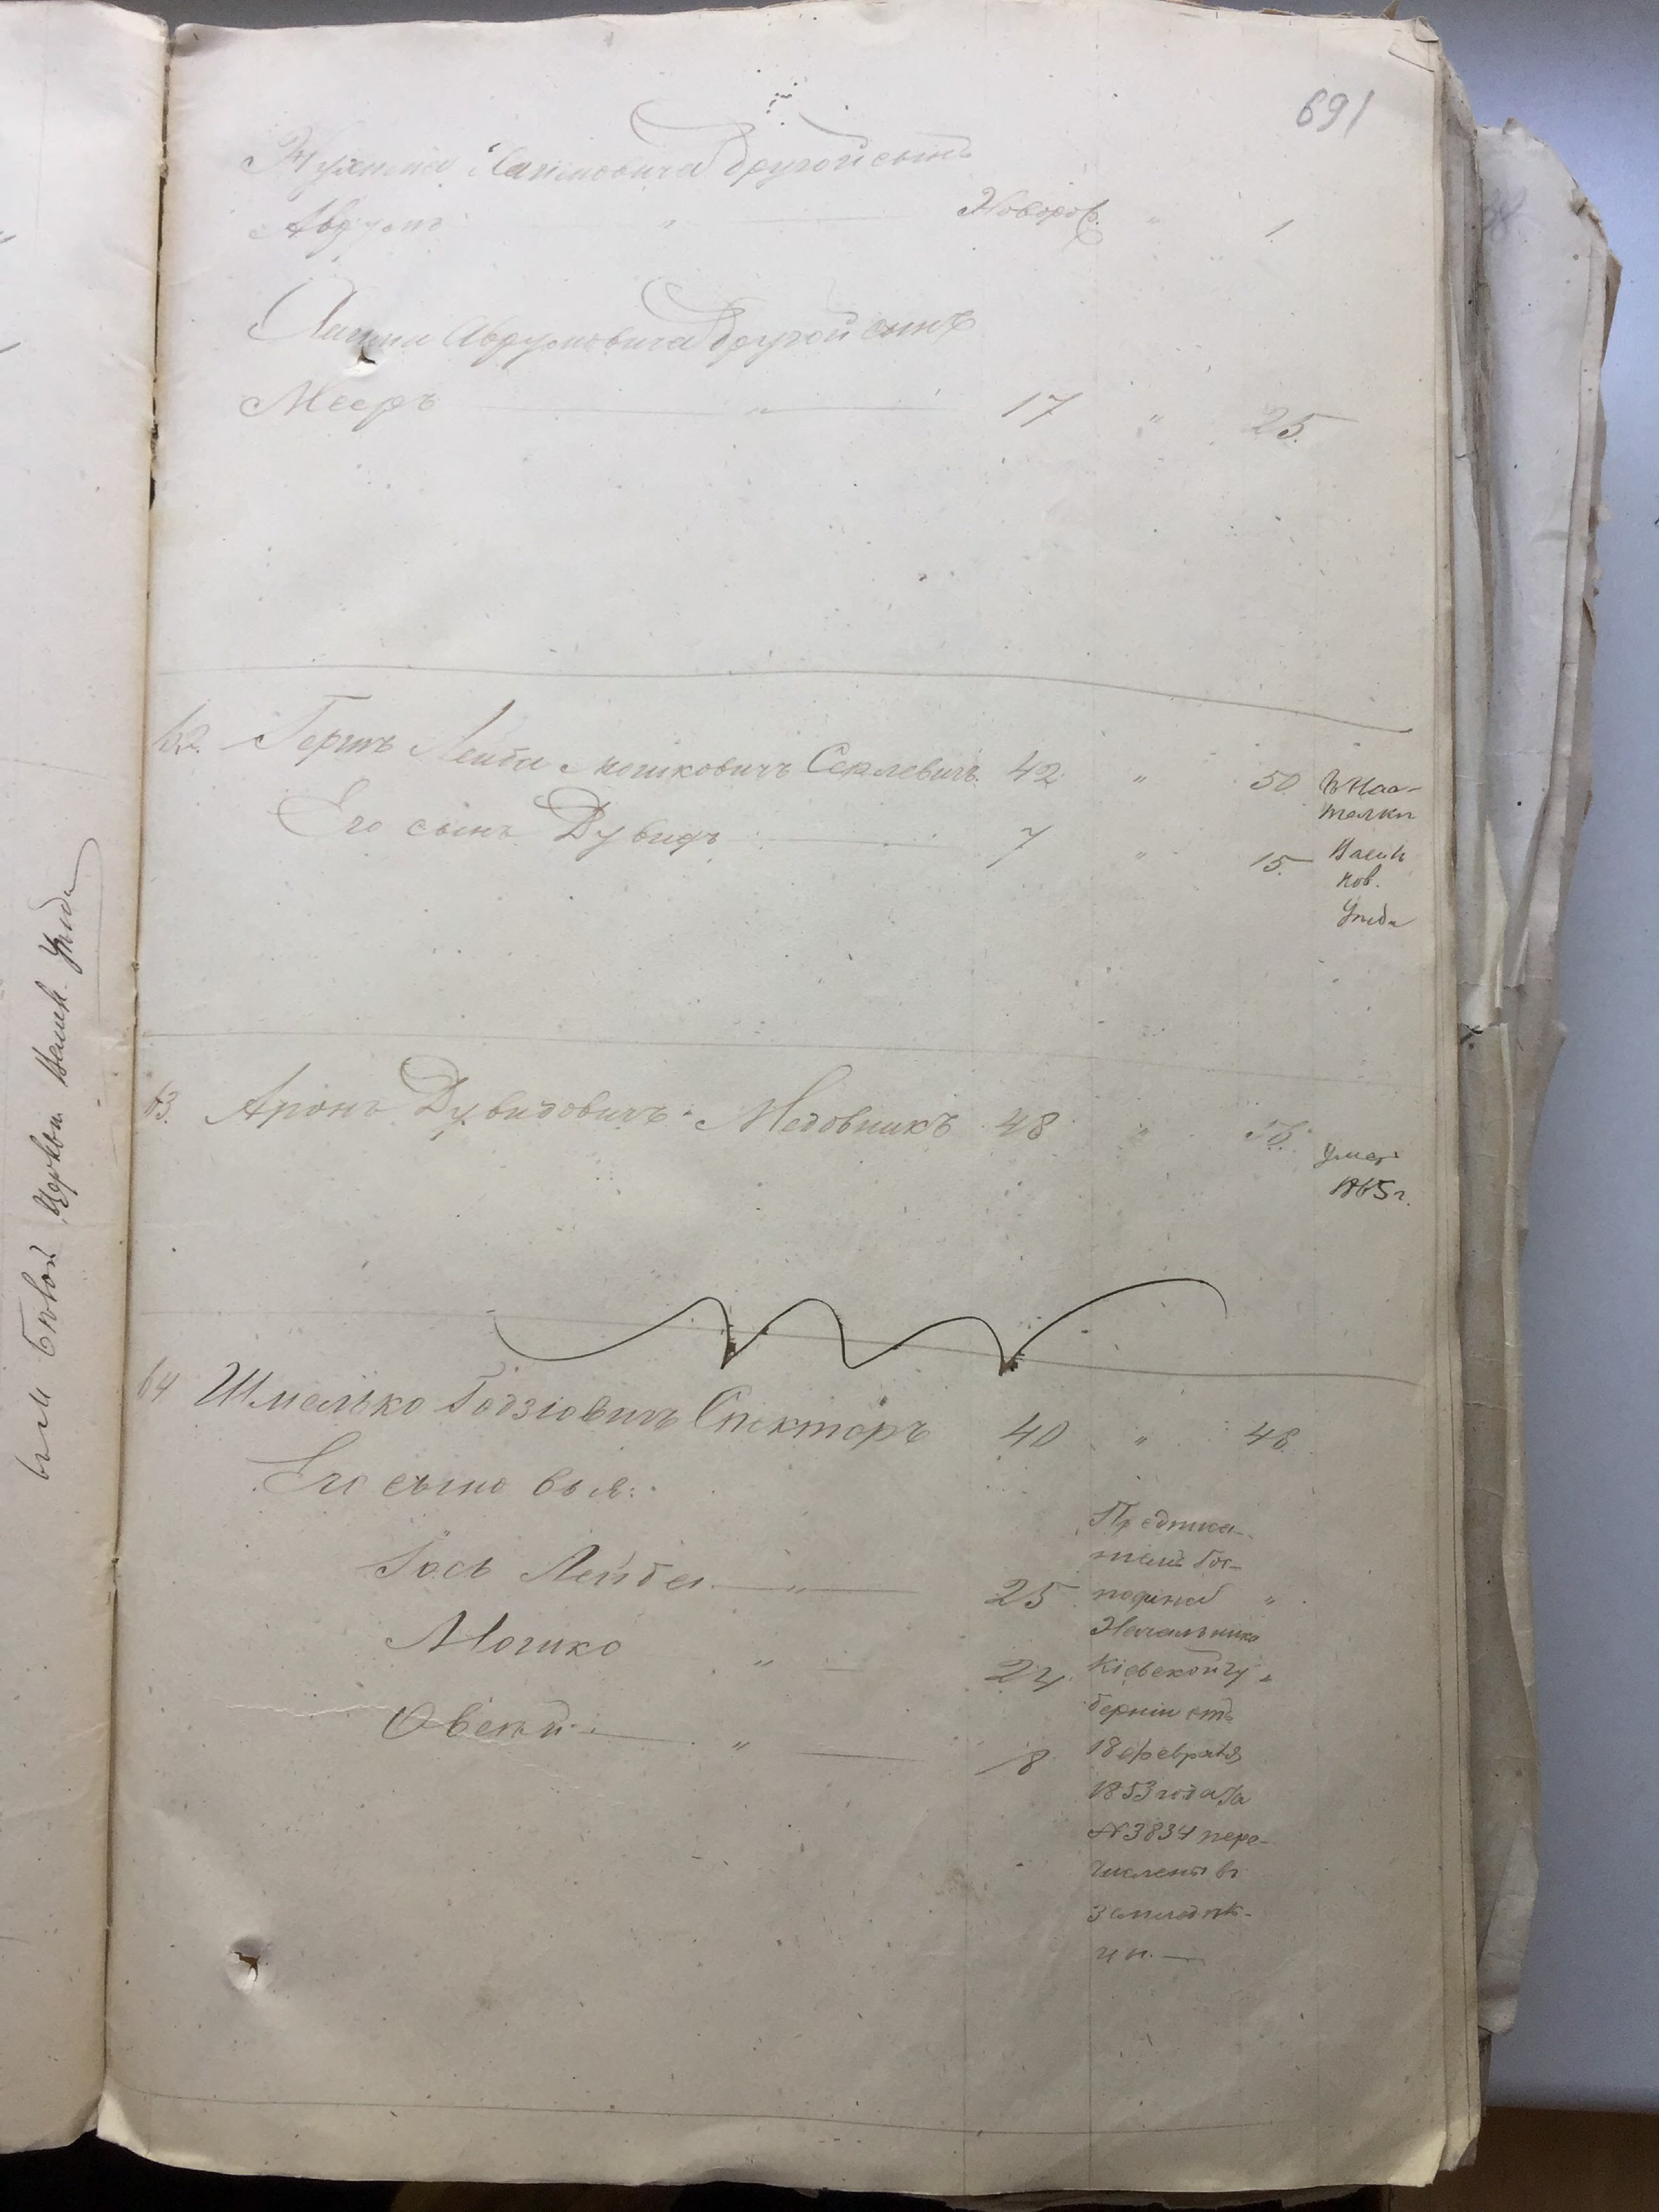 691
Нухима Хаимовича другой сынъ
Аврумъ " Новорож. " 1
Хаима Аврумовича другой сынъ
Мееръ " 17 " 25.
62. Гершъ Лейба Мошковичъ 42 " 50
Его сынъ Дувидъ 7 " 15
Василь
ков.
Уѣзда
63. Аронъ Дувидовичъ Медовникъ 48 "
Умер
1865 г.
64 Шмелько Іодзіовичъ Спекторъ 40 " 48
Его сыновья:
Іось Лейба " 25 "
Мошко " 24 "
Овсей " 8
Предписа-
ніемъ Гос-
подина
Начальника
Кіевской Гу
берніи отъ
18 февраля
1853 года за
№ 3834 пере-
числены въ
земледѣль-
цы.
Церкви Васильк. Уѣзда